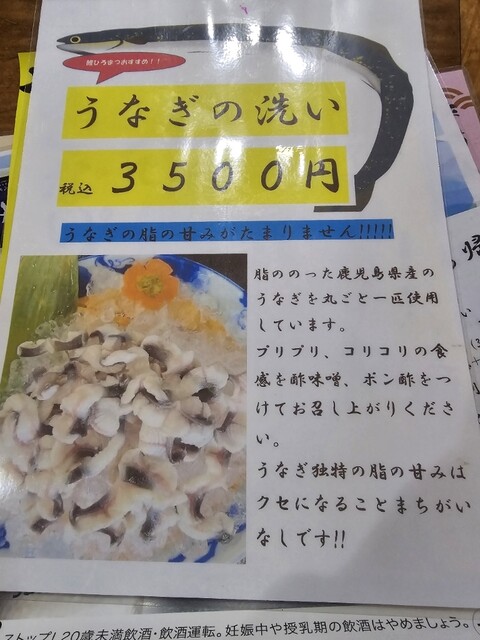 うなぎの洗い
税込 3500円
うなぎの脂の甘みがたまりません!!!!!
脂ののった鹿児島県産の
うなぎを丸ごと一匹使用
しています。
プリプリ、コリコリの食
感を酢味噌、ポン酢をつ
けてお召し上がりくださ
い。
うなぎ独特の脂の甘みは
クセになることまちがい
なしです!!
ストップ!20歳未満飲酒・飲酒運転。妊娠中や授乳期の飲酒はやめましょう。